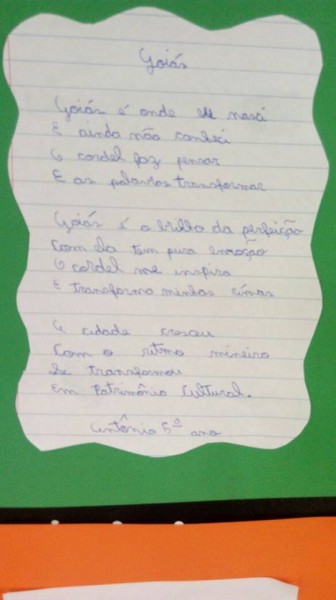 Goiás
Goiás é onde eu nasci
E ainda não conheci
O cordel faz pensar
E as palavras transformar
Goiás é o brilho da perfeição
Com ela tem pura emoção
O cordel me inspira
E transforma minhas rimas
A cidade cresceu
Com o ritmo mineiro
Se transformou
Em Patrimônio Cultural.
Antônio 5º ano